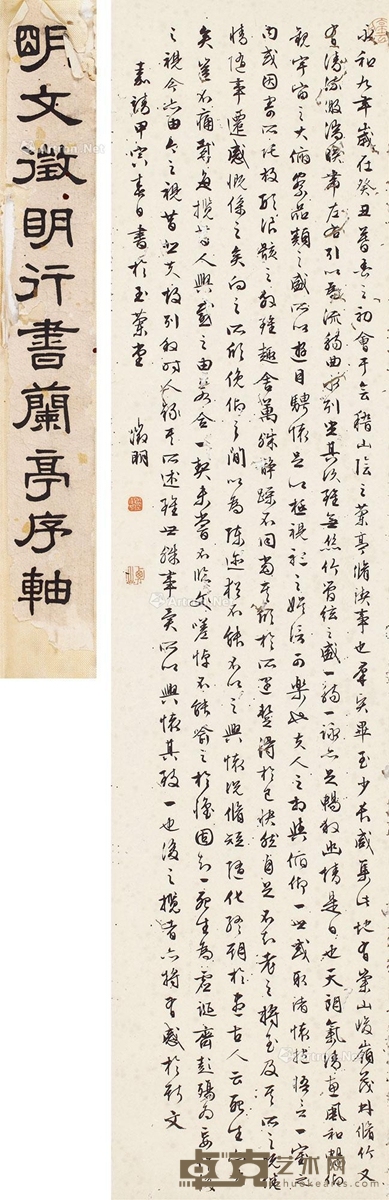 明文徵明行書蘭亭序軸
永和九年歲在癸丑暮春之初會于會稽山陰之蘭亭脩禊事也羣賢畢至少長咸集此地有崇山峻嶺茂林脩竹又
有清流激湍映帶左右引以為流觴曲水列坐其次雖無絲竹管弦之盛一觴一詠亦足暢敘幽情是日也天朗氣清惠風和暢仰
觀宇宙之大俯察品類之盛所以遊目騁懷足以極視聽之娛信可樂也夫人之相與俯仰一世或取諸懷抱悟言一室之
內或因寄所託放浪形骸之外雖趣舍萬殊靜躁不同當其欣於所遇蹔得於己快然自足不知老之將至及其所之既惓
情隨事遷感慨係之矣向之所欣俛仰之間以為陳迹猶不能不以之興懷況脩短隨化終期於盡古人云死生
矣豈不痛哉每攬昔人興感之由若合一契未嘗不臨文嗟悼不能喻之於懷固知一死生為虛誕齊彭殤為妄作後
之視今亦由今之視昔悲夫故列敘時人錄其所述雖世殊事異所以興懷其致一也後之攬者亦將有感於斯文
嘉靖甲寅春日書於玉蘭堂
徵明
卓克艺术网